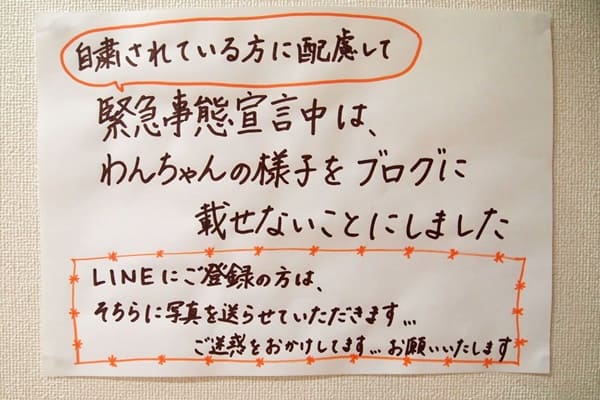 自粛されている方に配慮して
緊急事態宣言中は、
わんちゃんの様子をブログに
載せないことにしました
LINEにご登録の方は、
そちらに写真を送らせていただきます…
ご迷惑をおかけしてます…お願いいたします